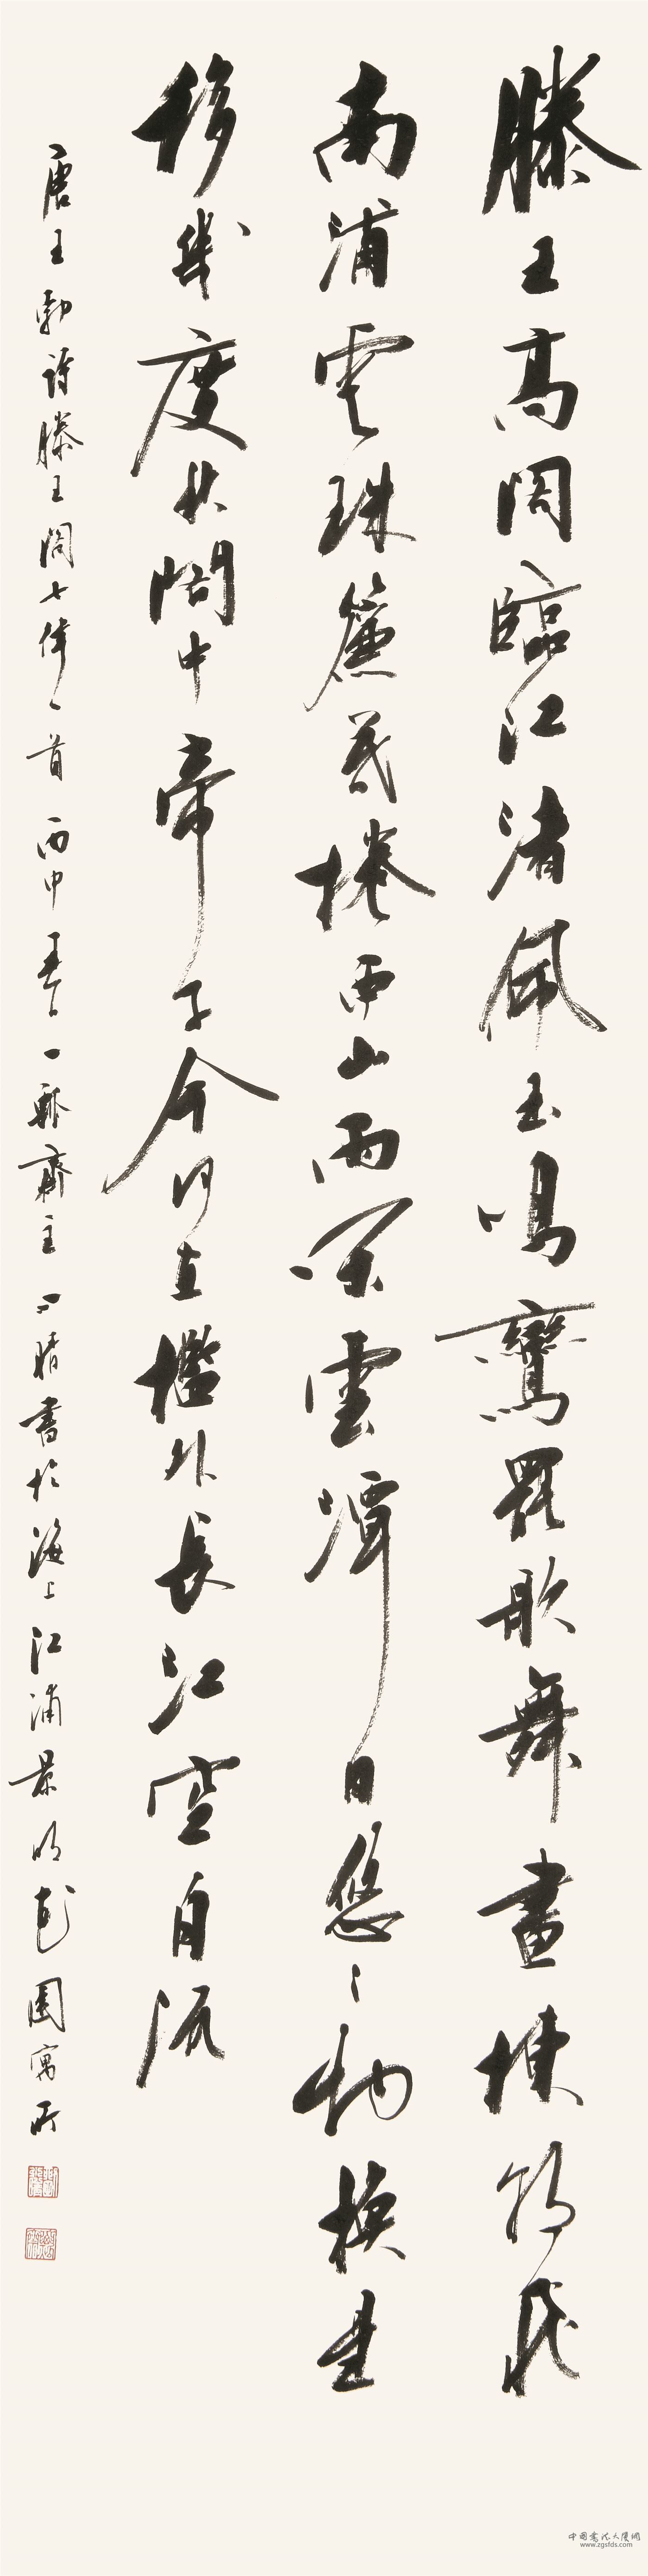 滕王高閣臨江渚佩玉鳴鸞罷歌舞畫棟朝飛
南浦雲珠簾暮捲西山雨閑雲潭日悠々物換星
移幾度秋閣中帝子今何在檻外長江空自流
唐王勃詩滕王閣七律一首丙申春一齋主晴書於海上江浦景明花園寓所
中国书法大厦网
www.zgsfds.com